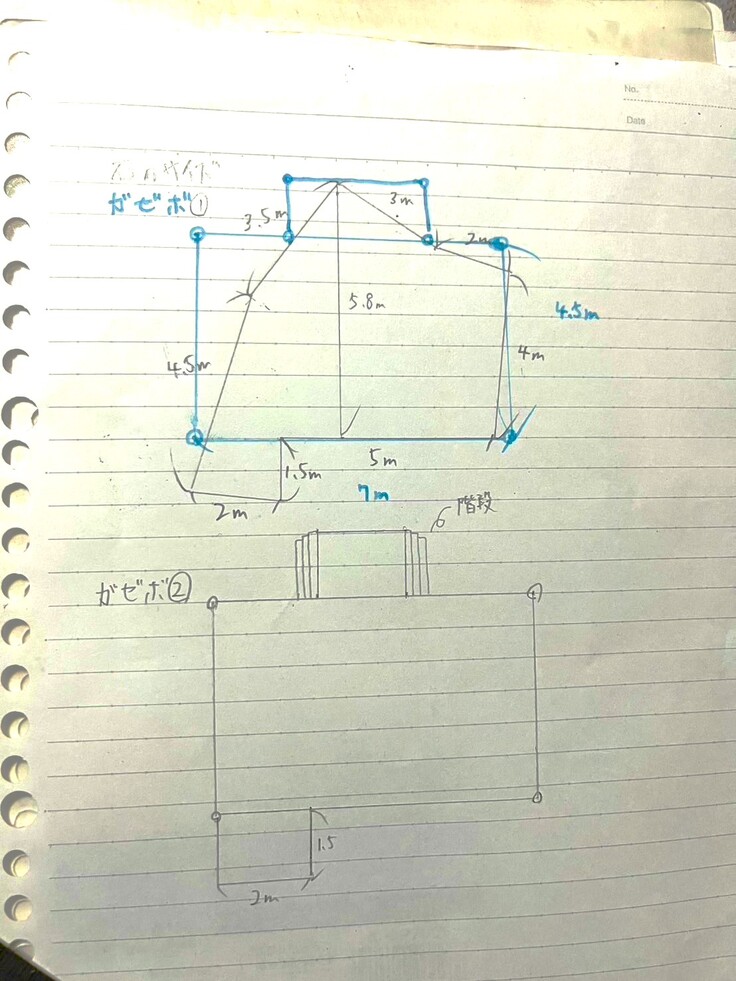 No.
Date
ガゼボ①
3.5m
3m
2m
5.8m
4.5m
4.5m
4m
1.5m
5m
2m
7m
階段
ガゼボ②
1.5
2m